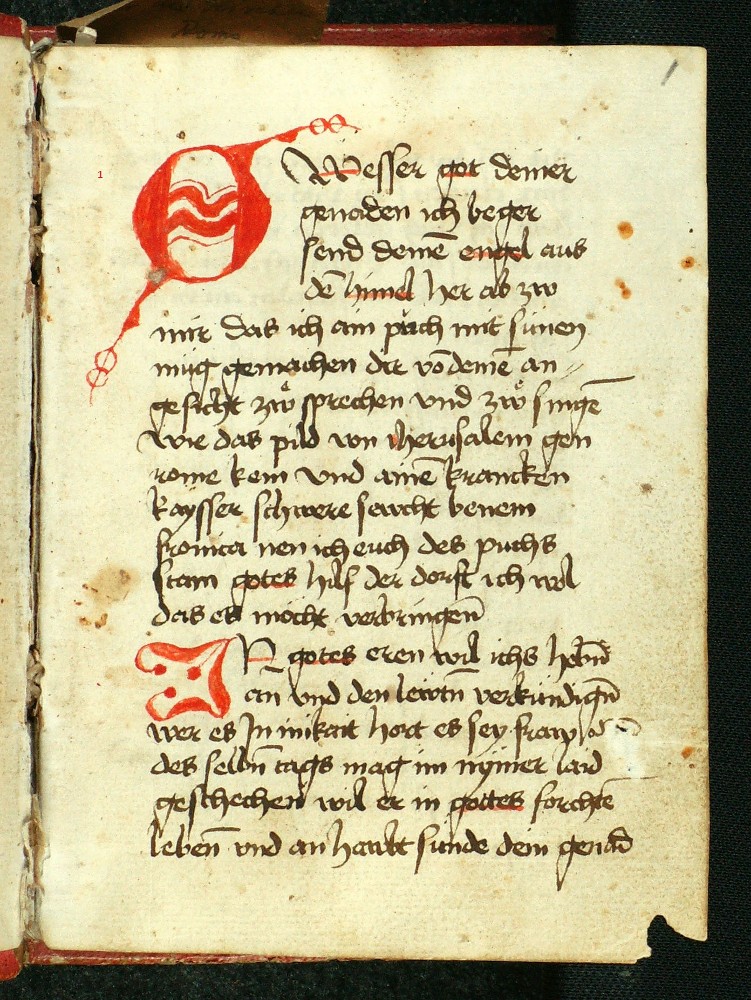 O Wesser got deiner
genaden ich beger
send deinē engel aus
dē himel her ab zw
mir das ich ain puͤch mit sinen
müg gemachen dir vō deinē an=
gesicht zwͦ sprechen vnd zwͦ singē
wie das pild von iherusalem gen
rome kem vnd ainē krancken
kaysser schwere sewcht benem
fronica nen ich euch des puchs
stam gotes hilf der dorft ich wol
das es möcht verbringen̄
IN gotes eren wil ichs hebn̄
an vnd den lewtn̄ verkündign̄
wer es Jn inikait hort es sey fraw
des selbn̄ tags mag im nymer laid
geschechen wil er in gottes forchtē
leben̄ vnd an haubt sunde dein genad
1